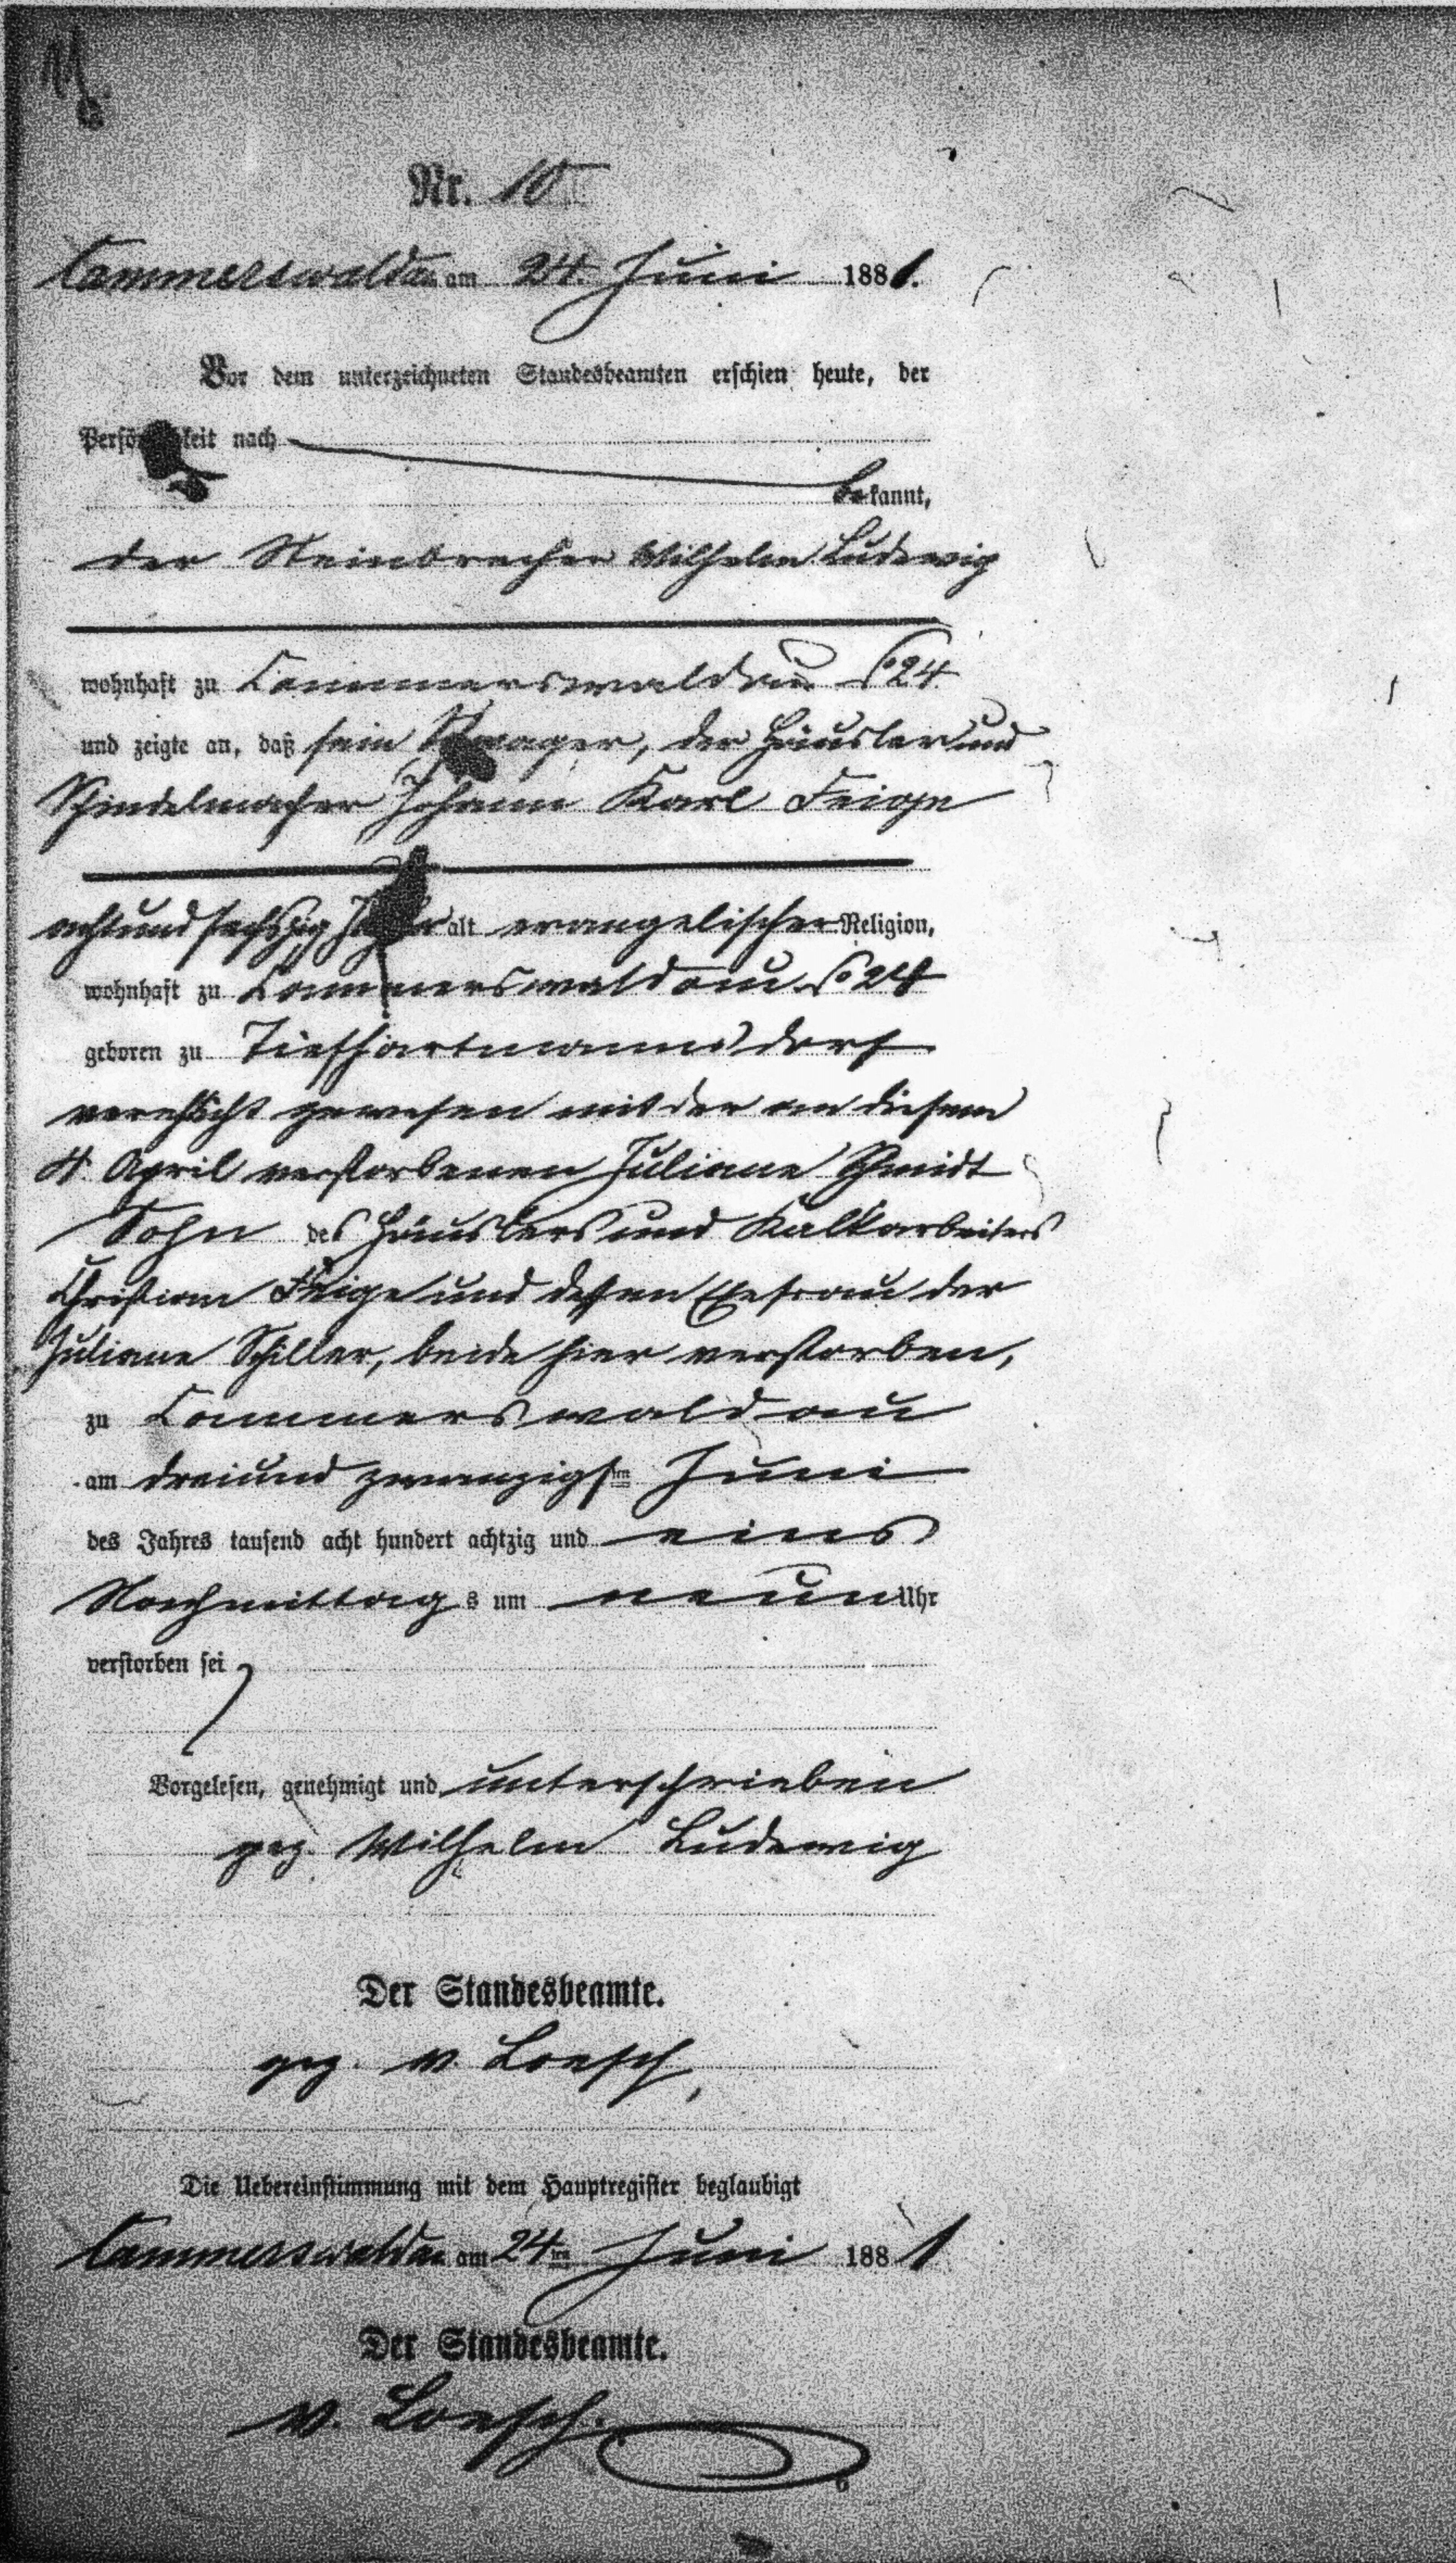 Nr. 10
Cammerswaldau am 24. Juni 1881.
Vor dem unterzeichneten Standesbeamten erschien heute, der
Persönlichkeit nach
bekannt,
der Steinbrecher Wilhelm Ludewig
wohnhaft zu Cammerswaldau No 24
und zeigte an, daß sein Schwager, der Häusler und
Schindelmacher Johann Karl Feige
achtundsechszig Jahr alt evangelischer Religion,
wohnhaft zu Cammerswaldau No 24
geboren zu Tiefhartmannsdorf
verehlicht gewesen mit der am diesem
4. April verstorbenen Juliane Schmidt
Sohn des Häuslers und Kalkarbeiters
Christian Feige und dessen Ehefrau der
Juliane Schiller, beide hier verstorben,
zu Cammerswaldau
am dreiund zwanzigsten Juni
des Jahres tausend acht hundert achtzig und eins
Nachmittags um neun Uhr
verstorben sei
Vorgelesen, genehmigt und unterschrieben
gez. Wilhelm Ludewig
Der Standesbeamte.
gez. v. Loesch,
Die Uebereinstimmung mit dem Hauptregister beglaubigt
Cammerswaldau am 24ten Juni 1881
Der Standesbeamte.
v. Loesch.